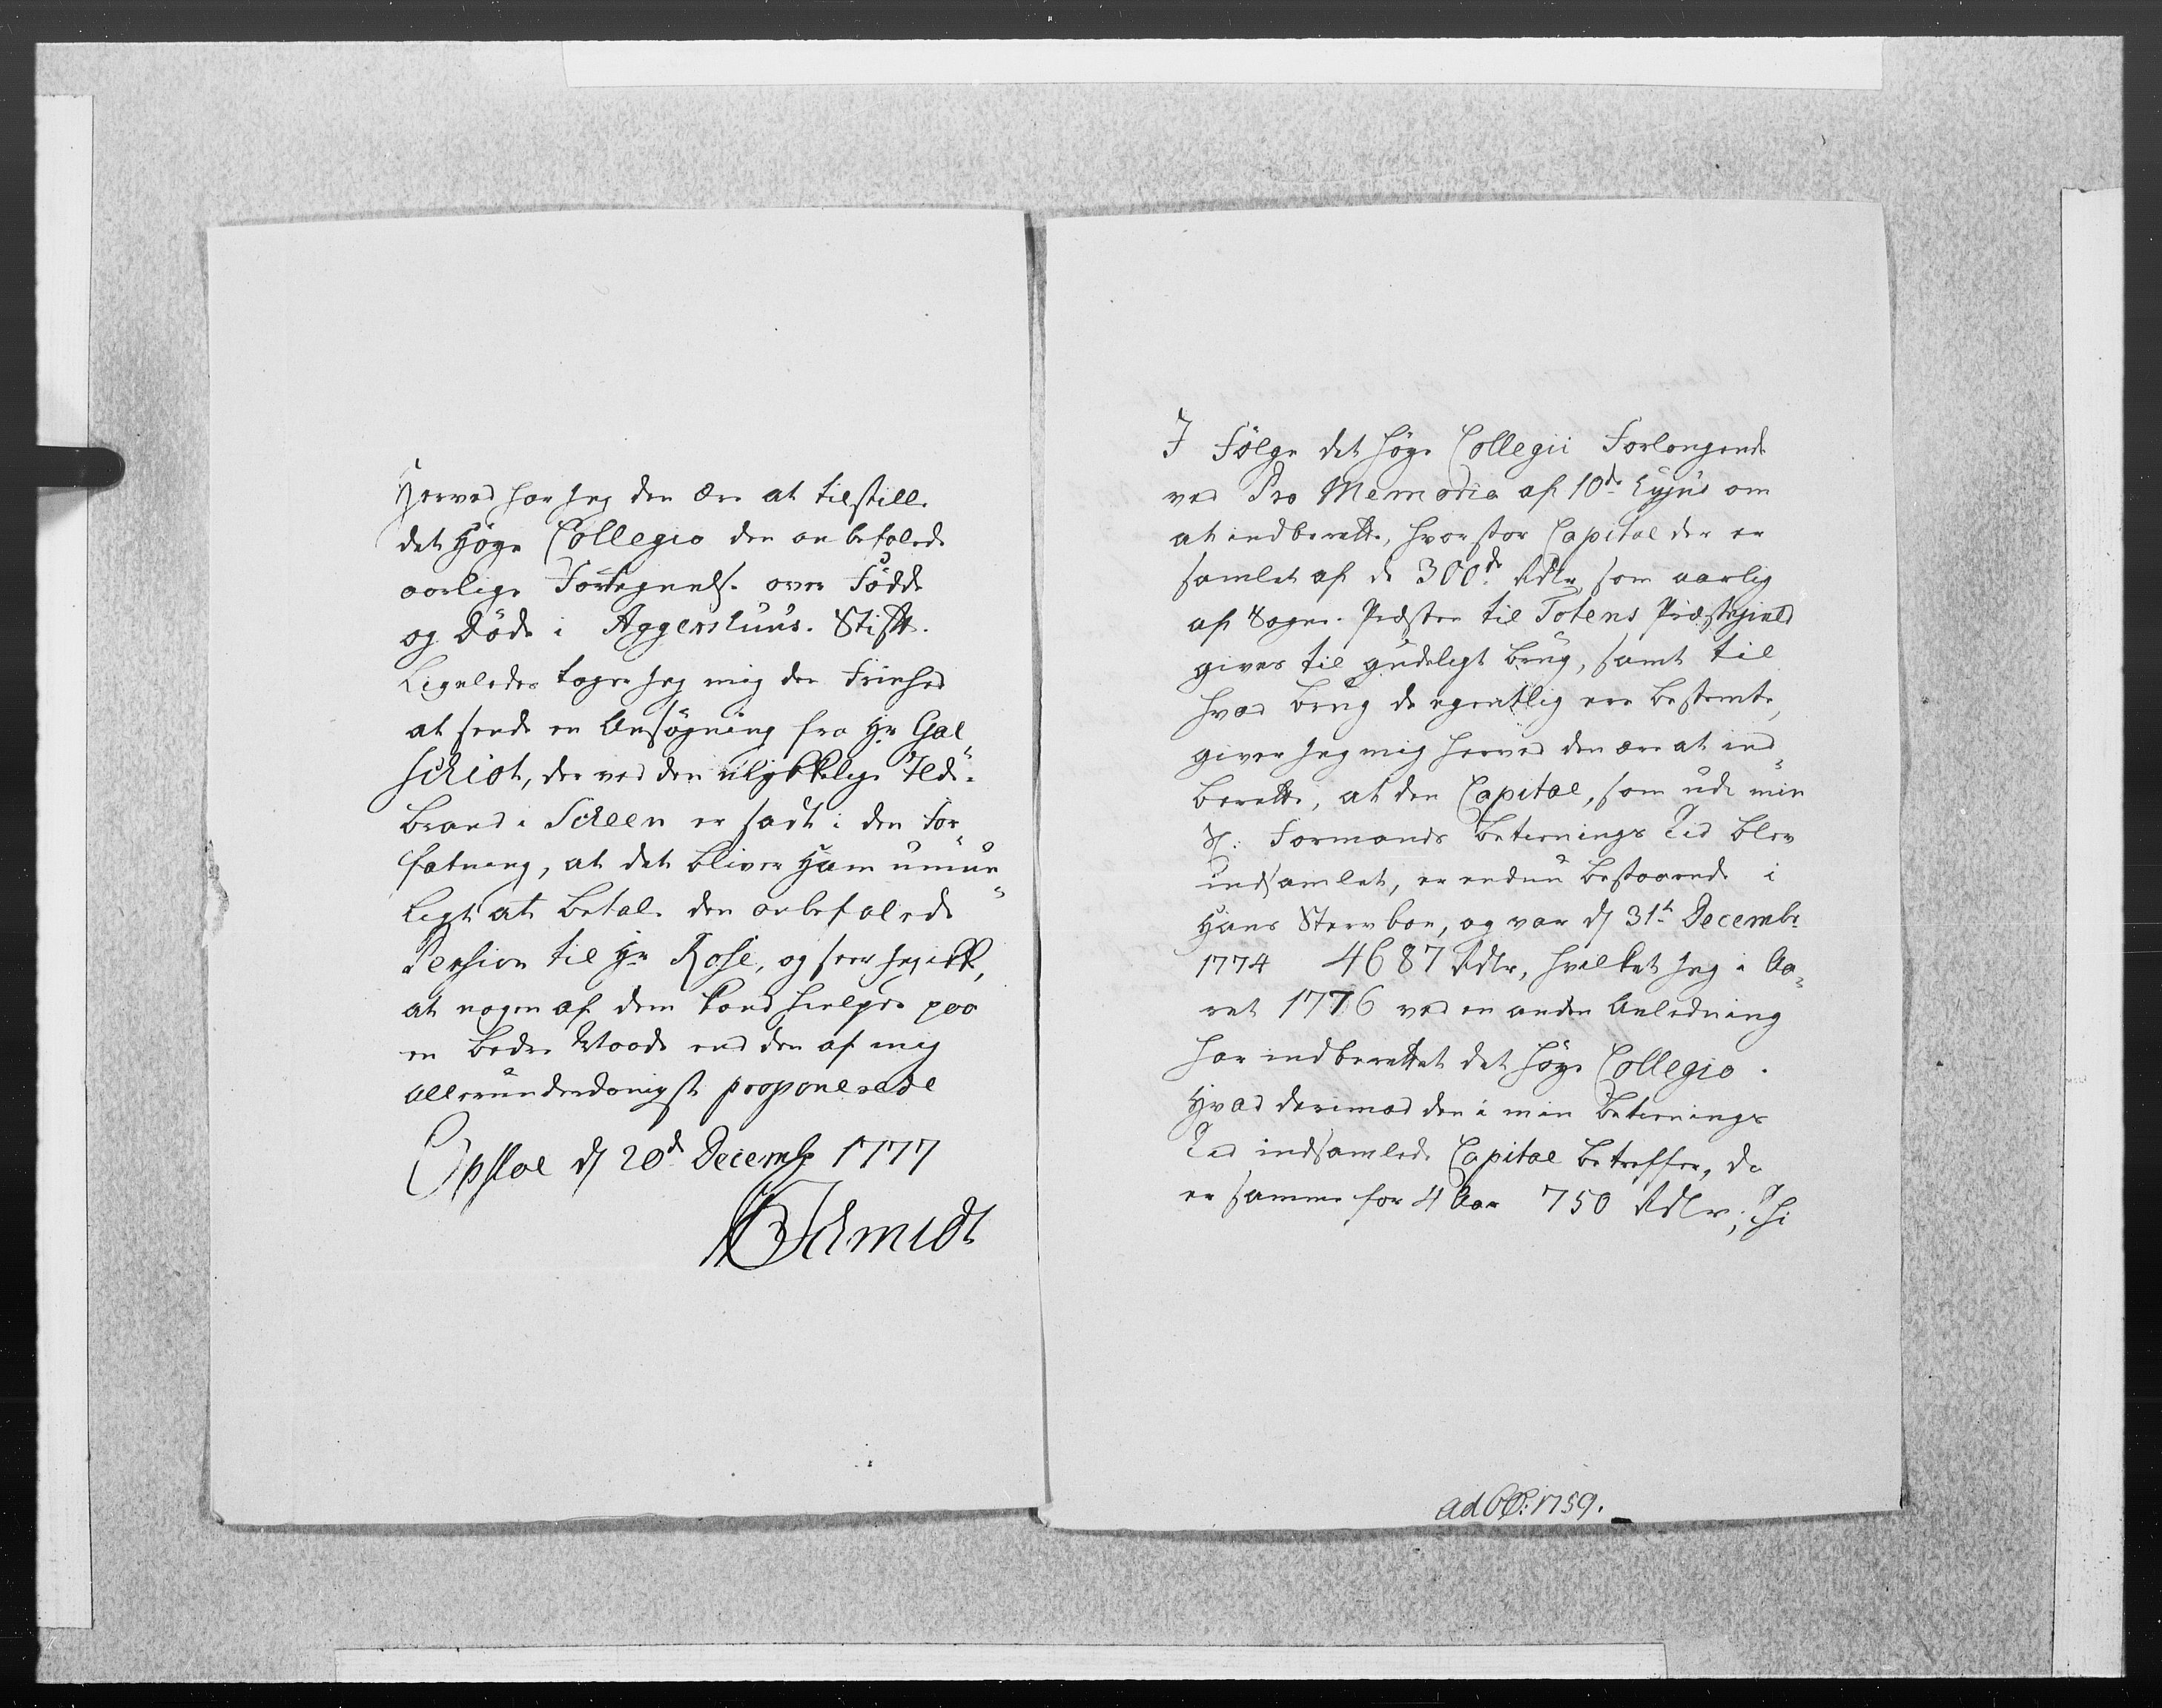 Herved har jeg den Ære at tilstille
det Høye Collegio den anbefalede
aarlige Fortegnelse over Fødde
og Døde i Aggershuus Stift.
Ligeledes tager jeg mig den Friehed
at sende en Ansøgning fra Hr Gal„
schiøt, der ved den ulykkelige Ilds-
brand i Scheen er sadt i den For„
fatning, at det bliver Ham umue„
ligt at betale den anbefalede
Pension til Hr Rose, og seer jeg ikke,
at nogen af dem kand hielpes paa
en bedre Maade end den af mig
allerunderdanigst proponerede
Opsloe d 20de Decembr 1777
Schmidt
I Følge det høye Collegii Forlangende
ved Pro Memoria af 10de hujus om
at indberette, hvor stor Capital der er
samlet af de 300de Rdlr, som aarlig
af Sogne-Præsten til Totens Præstegield
gives til gudeligt brug, samt til
hvad brug de egentlig ere bestemte,
giver jeg mig herved den ære at ind„
berette, at den Capital, som udi min
S. Formands betienings Tid blev
indsamlet, er endnu bestaaende i
Hans Sterv boe, og var d 31te Decembr
1774 4687 Rdlr, hvilket jeg i Aa„
ret 1776 ved en anden Anledning
har indberettet det høye Collegio.
Hvad derimod den i min betienings
Tid indsamlede Capital betreffer, da
er samme for 4 Aar 750 Rdlr; Thi
ad 1759.